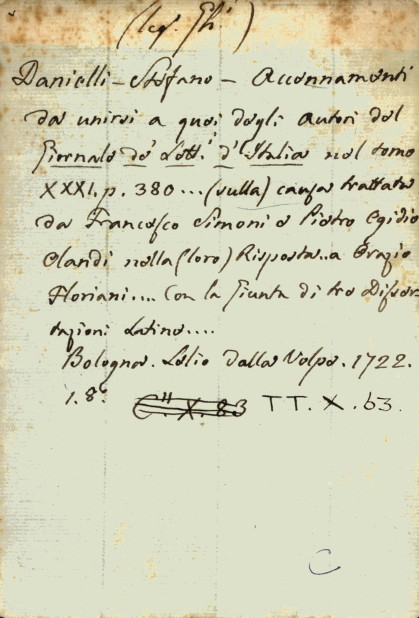 (leg. Gh.)
Danielli - Stefano - Accennamenti
da unirsi a quei degli Autori del
Giornale de' Lett.i d'Italia nel tomo
XXXI. p. 380... (sulla) causa trattata
da Francesco Simoni e Pietro Egidio
Olandi nella (loro) Risposta.. a Orazio
Floriani.... Con la Giunta di tre Disser-
tazioni Latine....
Bologna. Lelio dalla Volpe. 1722.
1. 8.°
TT. X. 63.
C